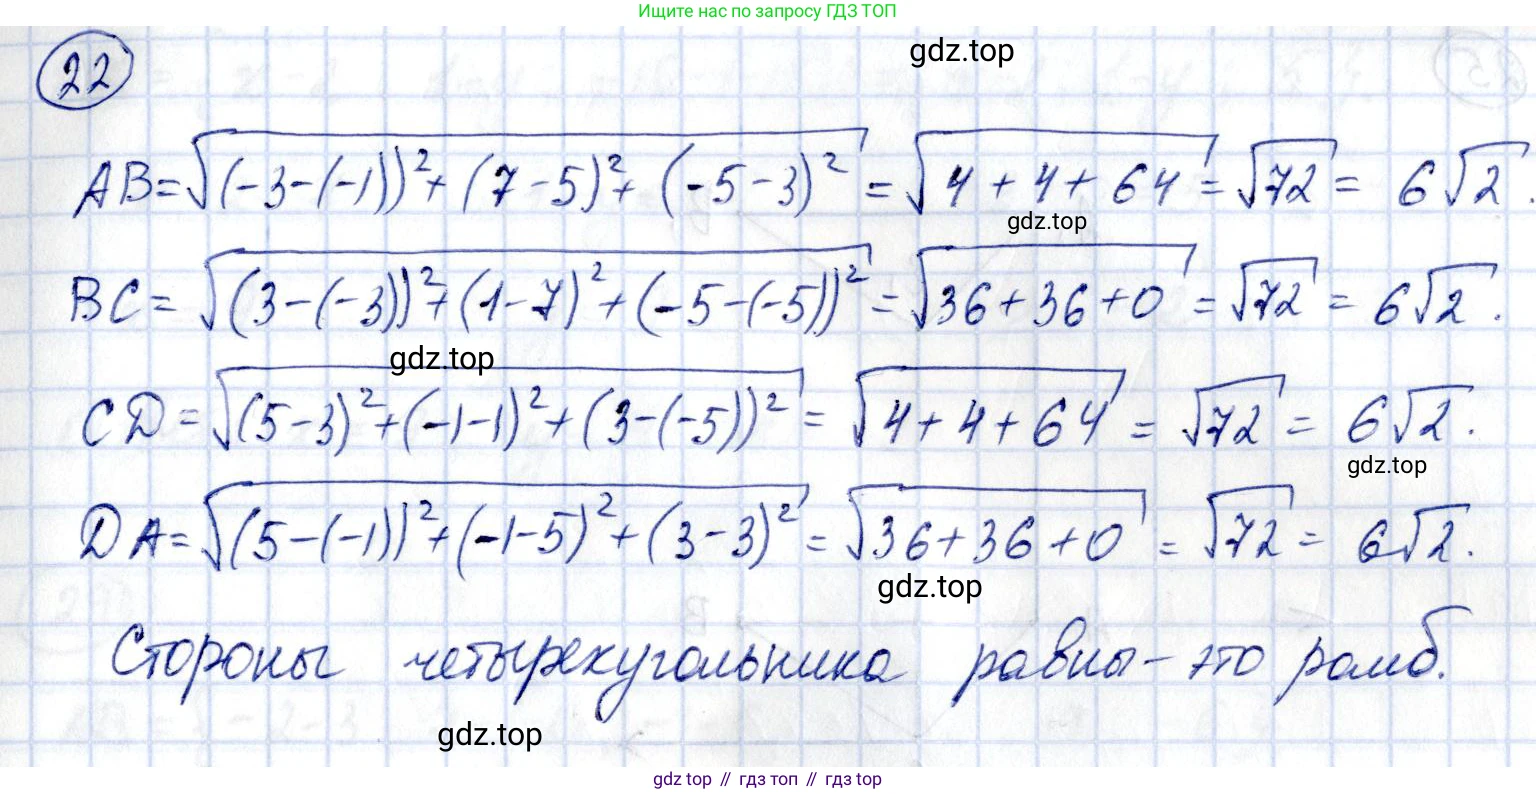 Ищите нас по запросу ГДЗ ТОП
22
gdz.top
AB=√((-3-(-1))²+(7-5)²+(-5-3)²) = √(4+4+64) = √72 = 6√2.
gdz.top
BC = √((3-(-3))²+(1-7)²+(-5-(-5))²) = √(36+36+0) = √72 = 6√2.
gdz.top
CD = √((5-3)²+(-1-1)²+(3-(-5))²) = √(4+4+64) = √72 = 6√2.
gdz.top
DA = √((5-(-1))²+(-1-5)²+(3-3)²) = √(36+36+0) = √72 = 6√2.
gdz.top
Стороны четырехугольника равны - это ромб.
gdz.top
gdz top // гдз топ // гдз top